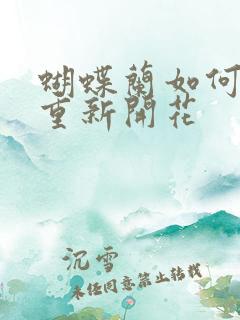 蝴蝶蘭如何
重新開花
沉雪
未經同意禁止轉載